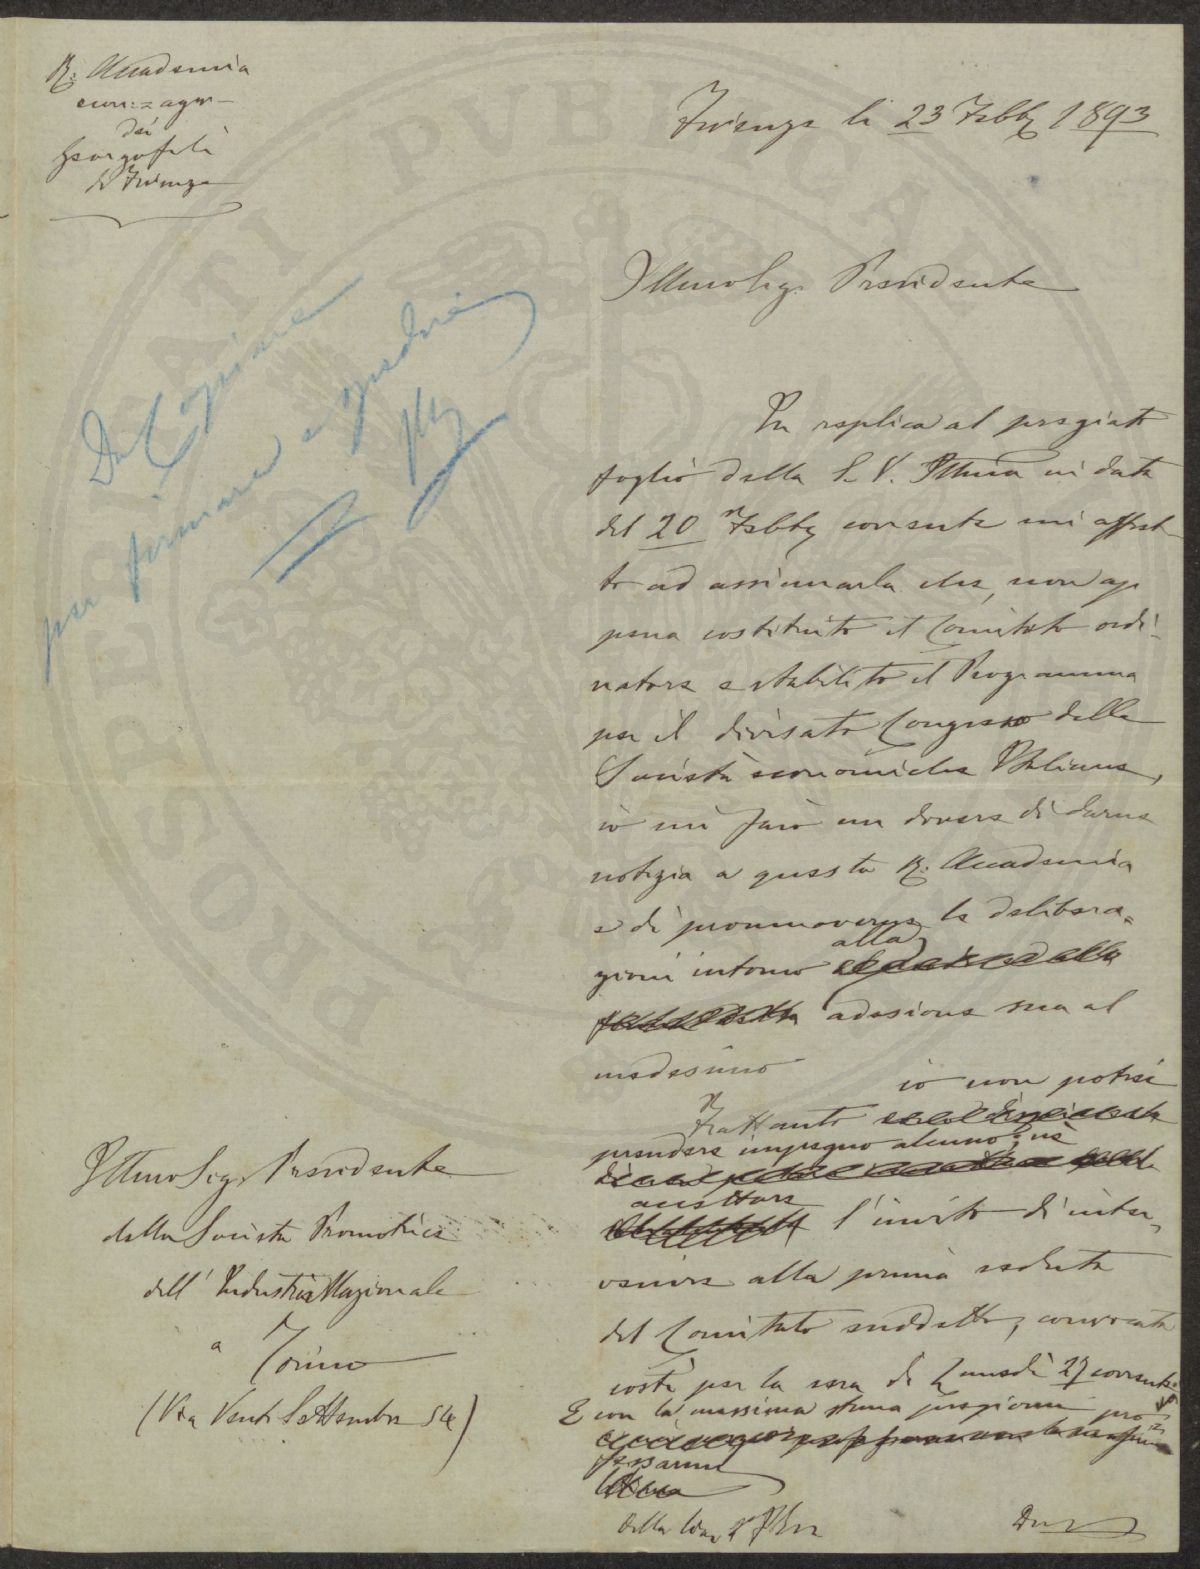 R. Accademia
econ: = agr-
dei
Georgofili
di Firenze
Firenze li 23 Febb. 1893
Illmo Sig. Presidente
Da Copiare
per firmare e spedire
In replica al pregiato
foglio della S. V. Illma in data
del 20 Febb. corrente mi affret-
to ad assicurarla che, non ap
pena costituito il Comitato ordi-
natore e stabilito il Programma
per il divisato Congresso delle
Società economiche Italiane,
io mi farò un dovere di darne
notizia a questa R. Accademia
e di promuoverne le delibera=
zioni intorno alla
adesione sua al
medesimo
io non potrei
Frattanto
prendere impegno alcuno, nè
accettare
l'invito di inter-
venire alla prima seduta
del Comitato suddetto, convocata
costì per la sera di Lunedì 27 corrente
E con la massima stima pregiomi pro
fessarmi
Della
Illmo Sig. Presidente
della Società Promotrice
dell' Industria Nazionale
a Torino
(Via Venti Settembre 54)
PROSPERITATI PUBLICAE